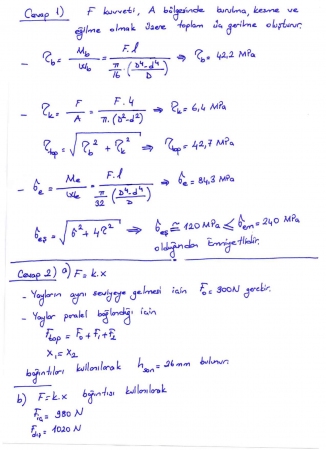 Cevap 1) F kuvveti, A bölgesinde burulma, kesme ve
eğilme olmak üzere toplam üç gerilme oluşturur.
- τb = Mb / Wb = F.l / (π/16 . (D⁴-d⁴ / D)) ⇒ τb = 42,2 MPa
- τk = F / A = F.4 / π.(D²-d²) ⇒ τk = 6,4 MPa
τtop = √(τb² + τk²) ⇒ τtop = 42,7 MPa
- σe = Me / We = F.l / (π/32 (D⁴-d⁴ / D)) ⇒ σe = 84,3 MPa
σeş = √(σ² + 4τ²) ⇒ σeş ≅ 120 MPa ≤ σem = 240 MPa
olduğundan Emniyetlidir.
Cevap 2) a) F = k.x
- Yayların aynı seviyeye gelmesi için F₀ = 300N gerekir.
- Yaylar paralel bağlandığı için
Ftop = F₀ + F₁ + F₂
x₁ = x₂
bağıntıları kullanılarak hson = 26 mm bulunur.
b) F = k.x bağıntısı kullanılarak
Fiç = 980 N
Fdış = 1020 N